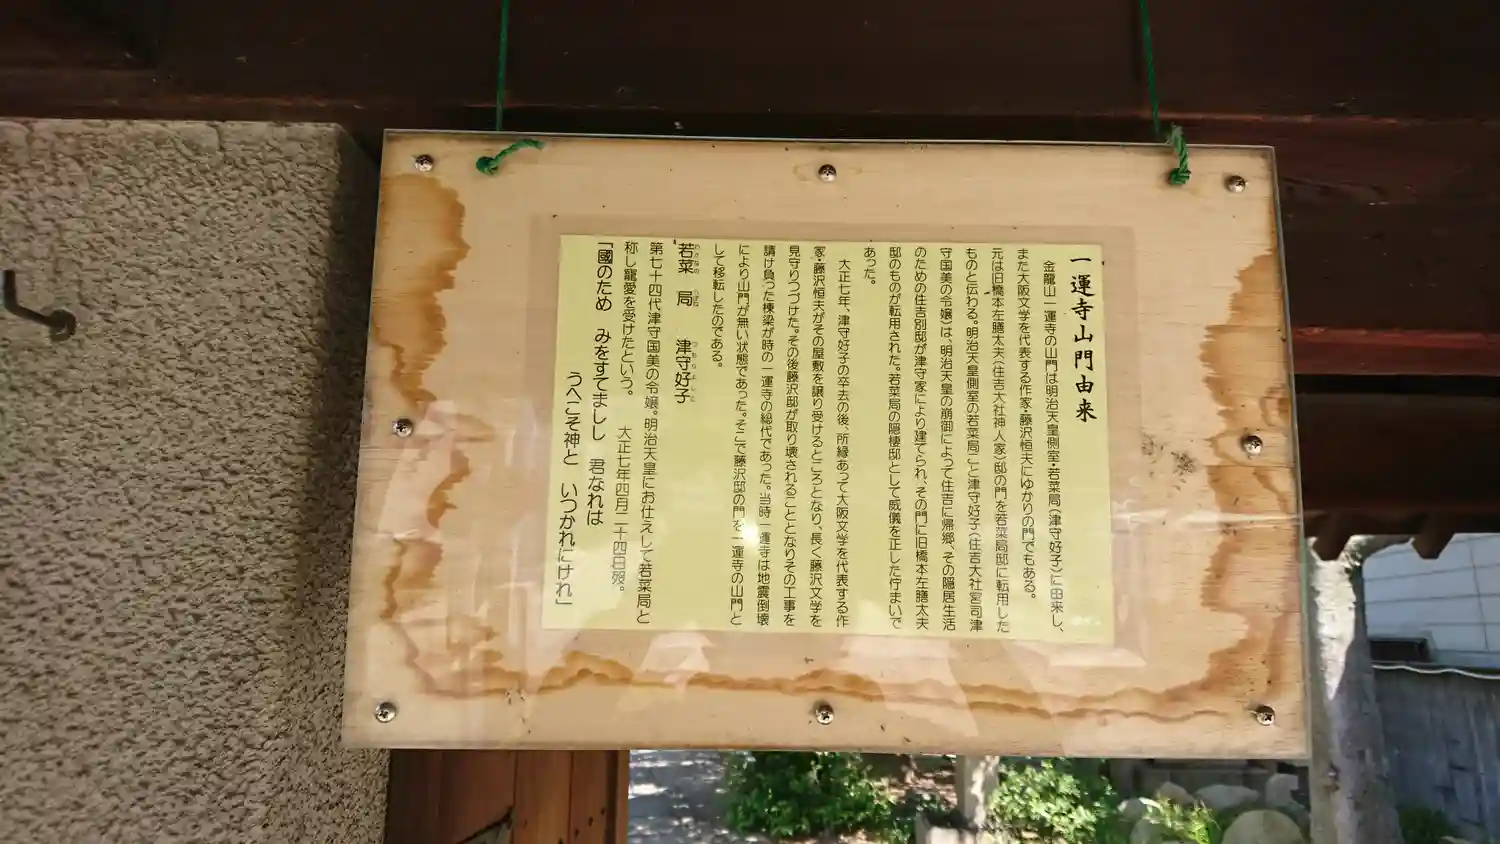 一運寺山門由来
金龍山一運寺の山門は明治天皇側室・若菜局(津守好子)に由来し、
また大阪文学を代表する作家・藤沢恒夫にゆかりの門でもある。
元は旧橋本左膳太夫(住吉大社神人家)邸の門を若菜局邸に転用した
ものと伝わる。明治天皇側室の若菜局こと津守好子(住吉大社宮司津
守国美の令嬢)は、明治天皇の崩御によって住吉に帰郷、その隠居生活
のための住吉別邸が津守家により建てられ、その門に旧橋本左膳太夫
邸のものが転用された。若菜局の隠棲邸として威儀を正した佇まいで
あった。
大正七年、津守好子の卒去の後、所縁あって大阪文学を代表する作
家・藤沢恒夫がその屋敷を譲り受けるところとなり、長く藤沢文学を
見守りつづけた。その後藤沢邸が取り壊されることとなりその工事を
請け負った棟梁が時の一運寺の総代であった。当時一運寺は地震倒壊
により山門が無い状態であった。そこで藤沢邸の門を一運寺の山門と
して移転したのである。
若菜 局 津守好子
第七十四代津守国美の令嬢。明治天皇にお仕えして若菜局と
称し寵愛を受けたという。 大正七年四月二十四日歿。
「國のため みをすてましし 君なれは
うへこそ神と いつかれにけれ」